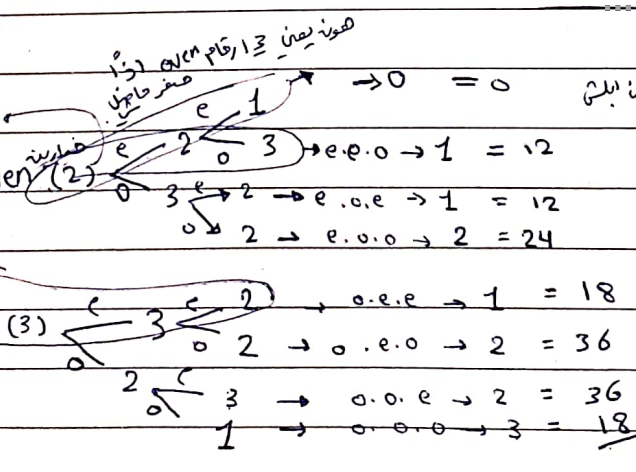 هون يعني 3 ارقام even اذاً
صفر ما في
→ 0 = 0
e 1
e 2 o 3 → e.e.o → 1 = 12
en (2) o 3 e → 2 → e.o.e → 1 = 12
o → 2 → e.o.o → 2 = 24
e e 2 → o.e.e → 1 = 18
(3) 3 o 2 → o.e.o → 2 = 36
o 2 e 3 → o.o.e → 2 = 36
o 1 → o.o.o → 3 = 18